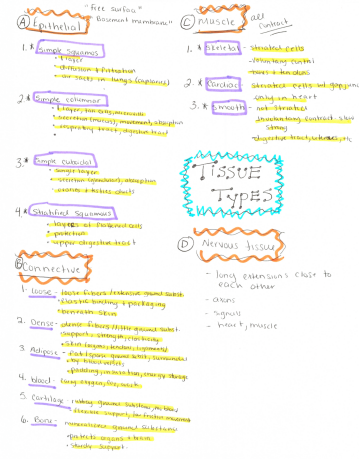 "Free surface"
"Basement membrane"
A Epithelial
1. * Simple squamos
• 1 layer
• diffusion & filtration
• air sacs in lungs (capillaries)
2. * Simple columnar
• 1 layer,
• secretion (mucus), movement, absorption
• respiratory tract, digestive tract
•
3. * Simple cuboidal
• single layer
• secretion (glandular), absorption
• ovaries & testes ducts
4. * Stratified Squamous
• layers of flattened cells
• protection
• upper digestive tract
B Connective
1. Loose - loose fibers/extensive ground subst.
• elastic binding & packaging
• beneath skin
2. Dense - dense fibers/little ground subst.
• support, strength, elasticity
• skin (dermis), tendons, ligaments
3. Adipose - fat/sparse ground subst, surrounded
by blood vessels
• padding, insulation, energy storage
4. blood - carry oxygen,
5. Cartilage - rubbery ground substance,
flexible support, low friction movement
6. Bone - mineralized ground substance
• protects organs & brain
• sturdy support
C Muscle all contract
1. * Skeletal - striated cells
- voluntary control
2. * Cardiac - striated cells w/ gap junc
only in heart
3. * Smooth - not striated
- involuntary contract. slow
strong
- digestive tract, uterus, etc
TISSUE
TYPES
D Nervous tissue
- long extensions close to
each other
- axons
- signals
- heart, muscle